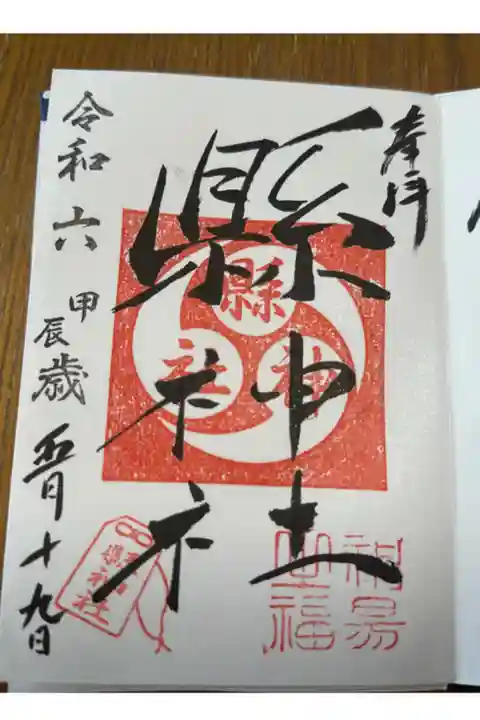 奉拝
縣神社
縣神社
令和六甲辰歳五月十九日
福